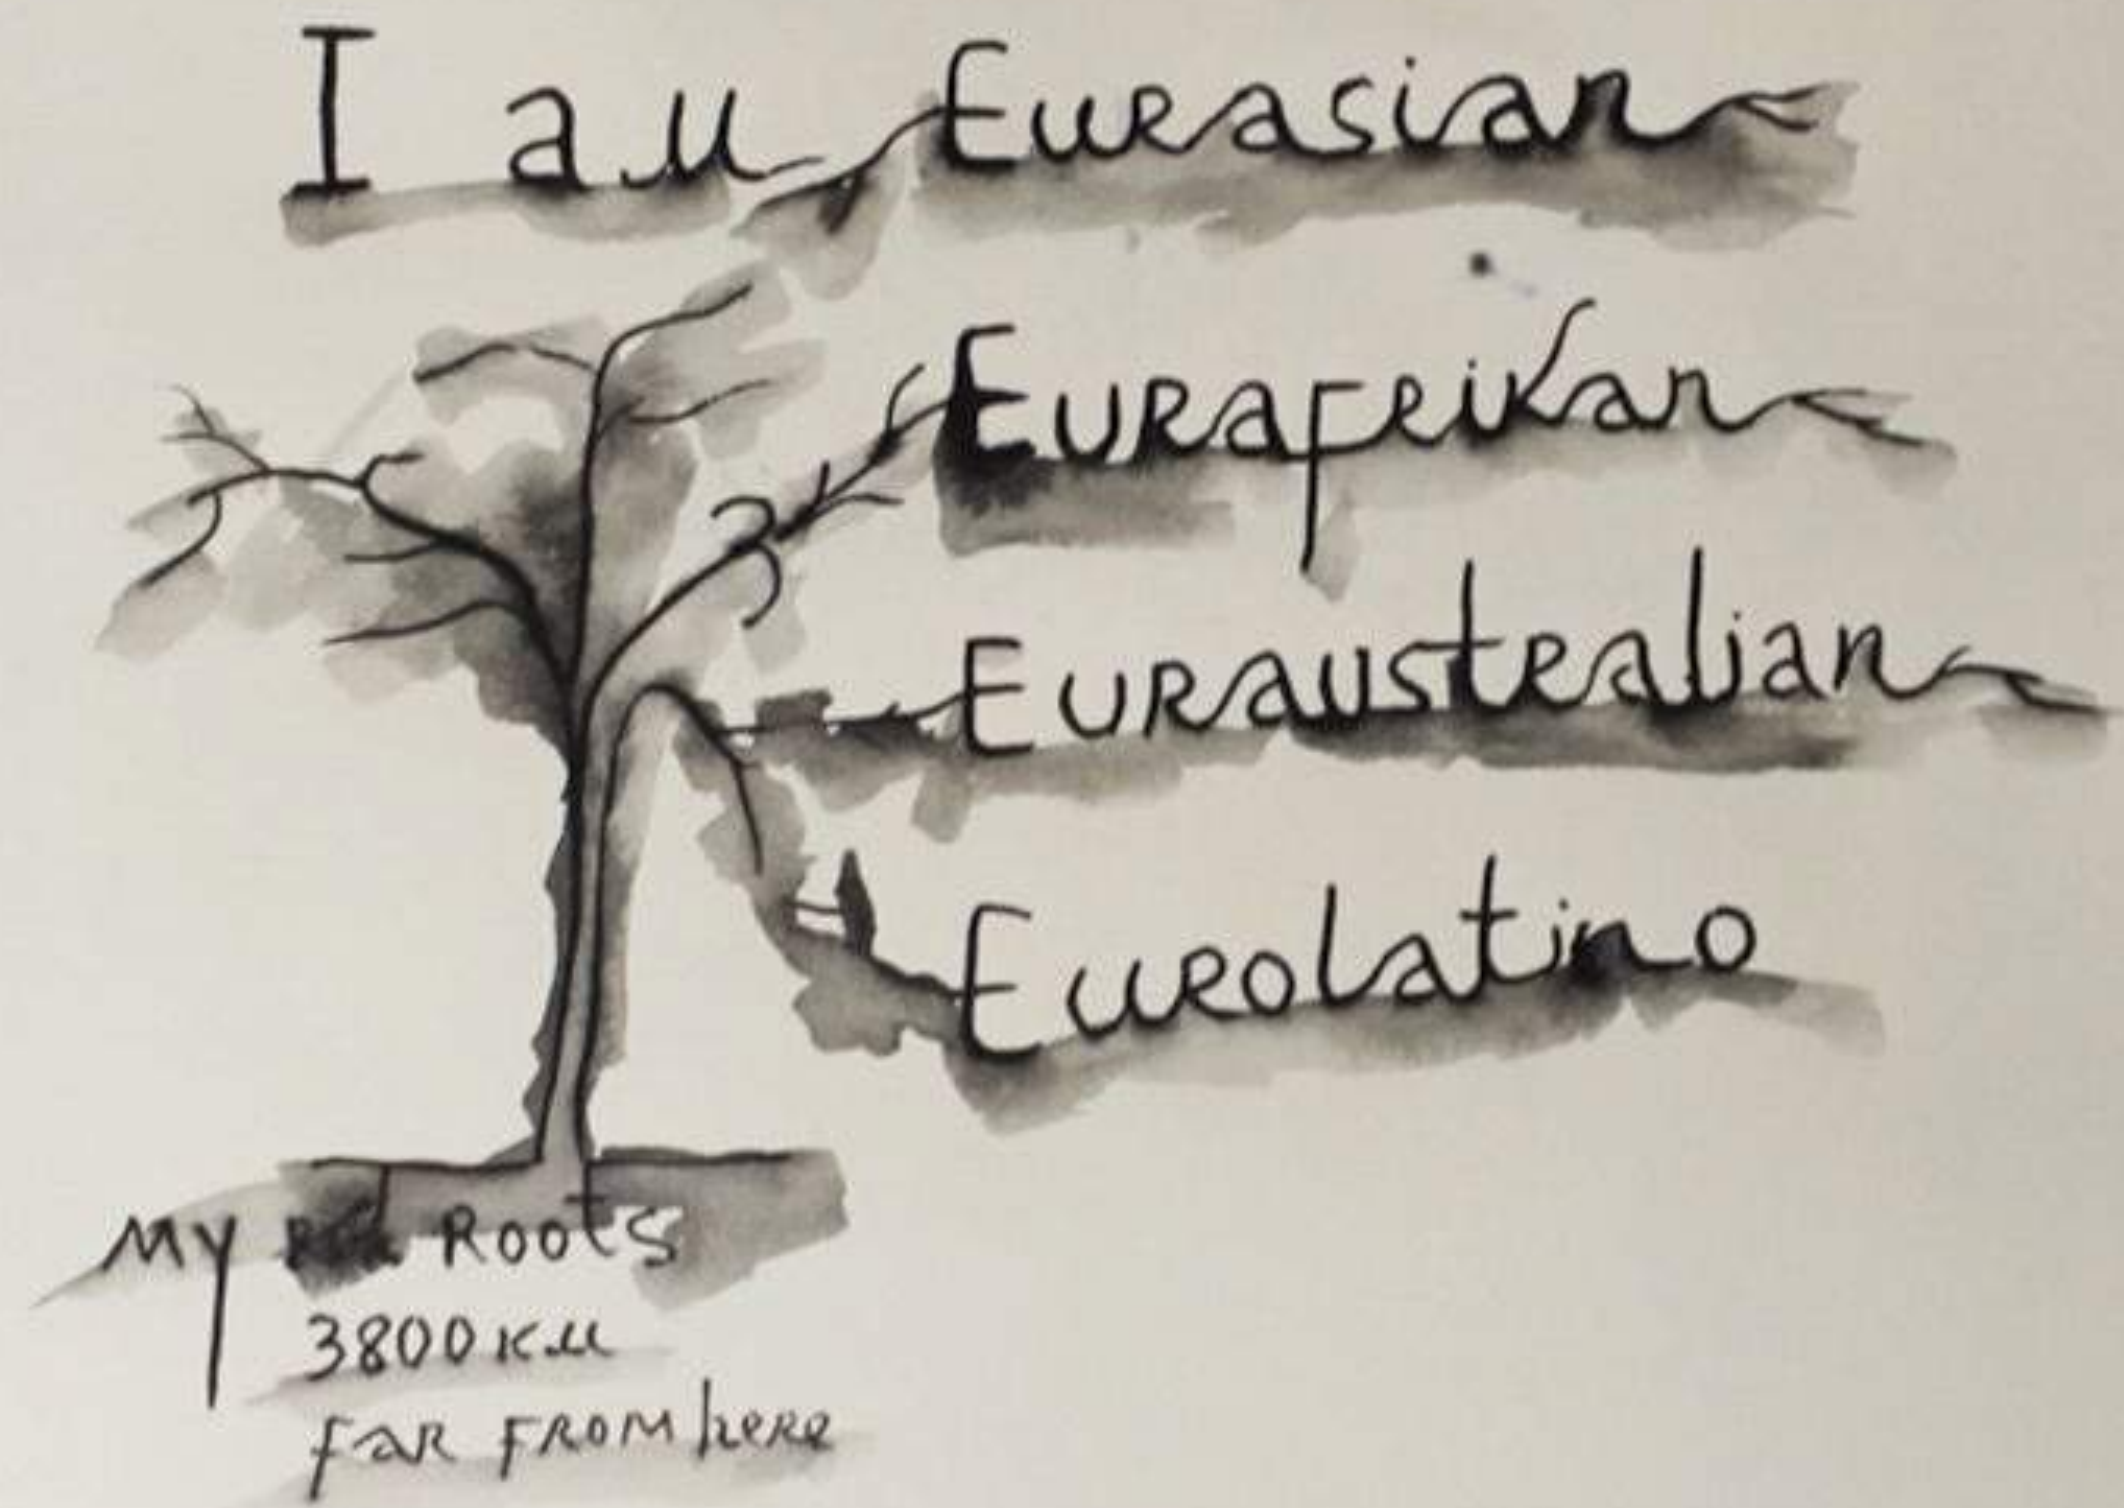 I am Eurasian
Eurafrikan
Euraustralian
Eurolatino
My Roots
3800 km
far from here